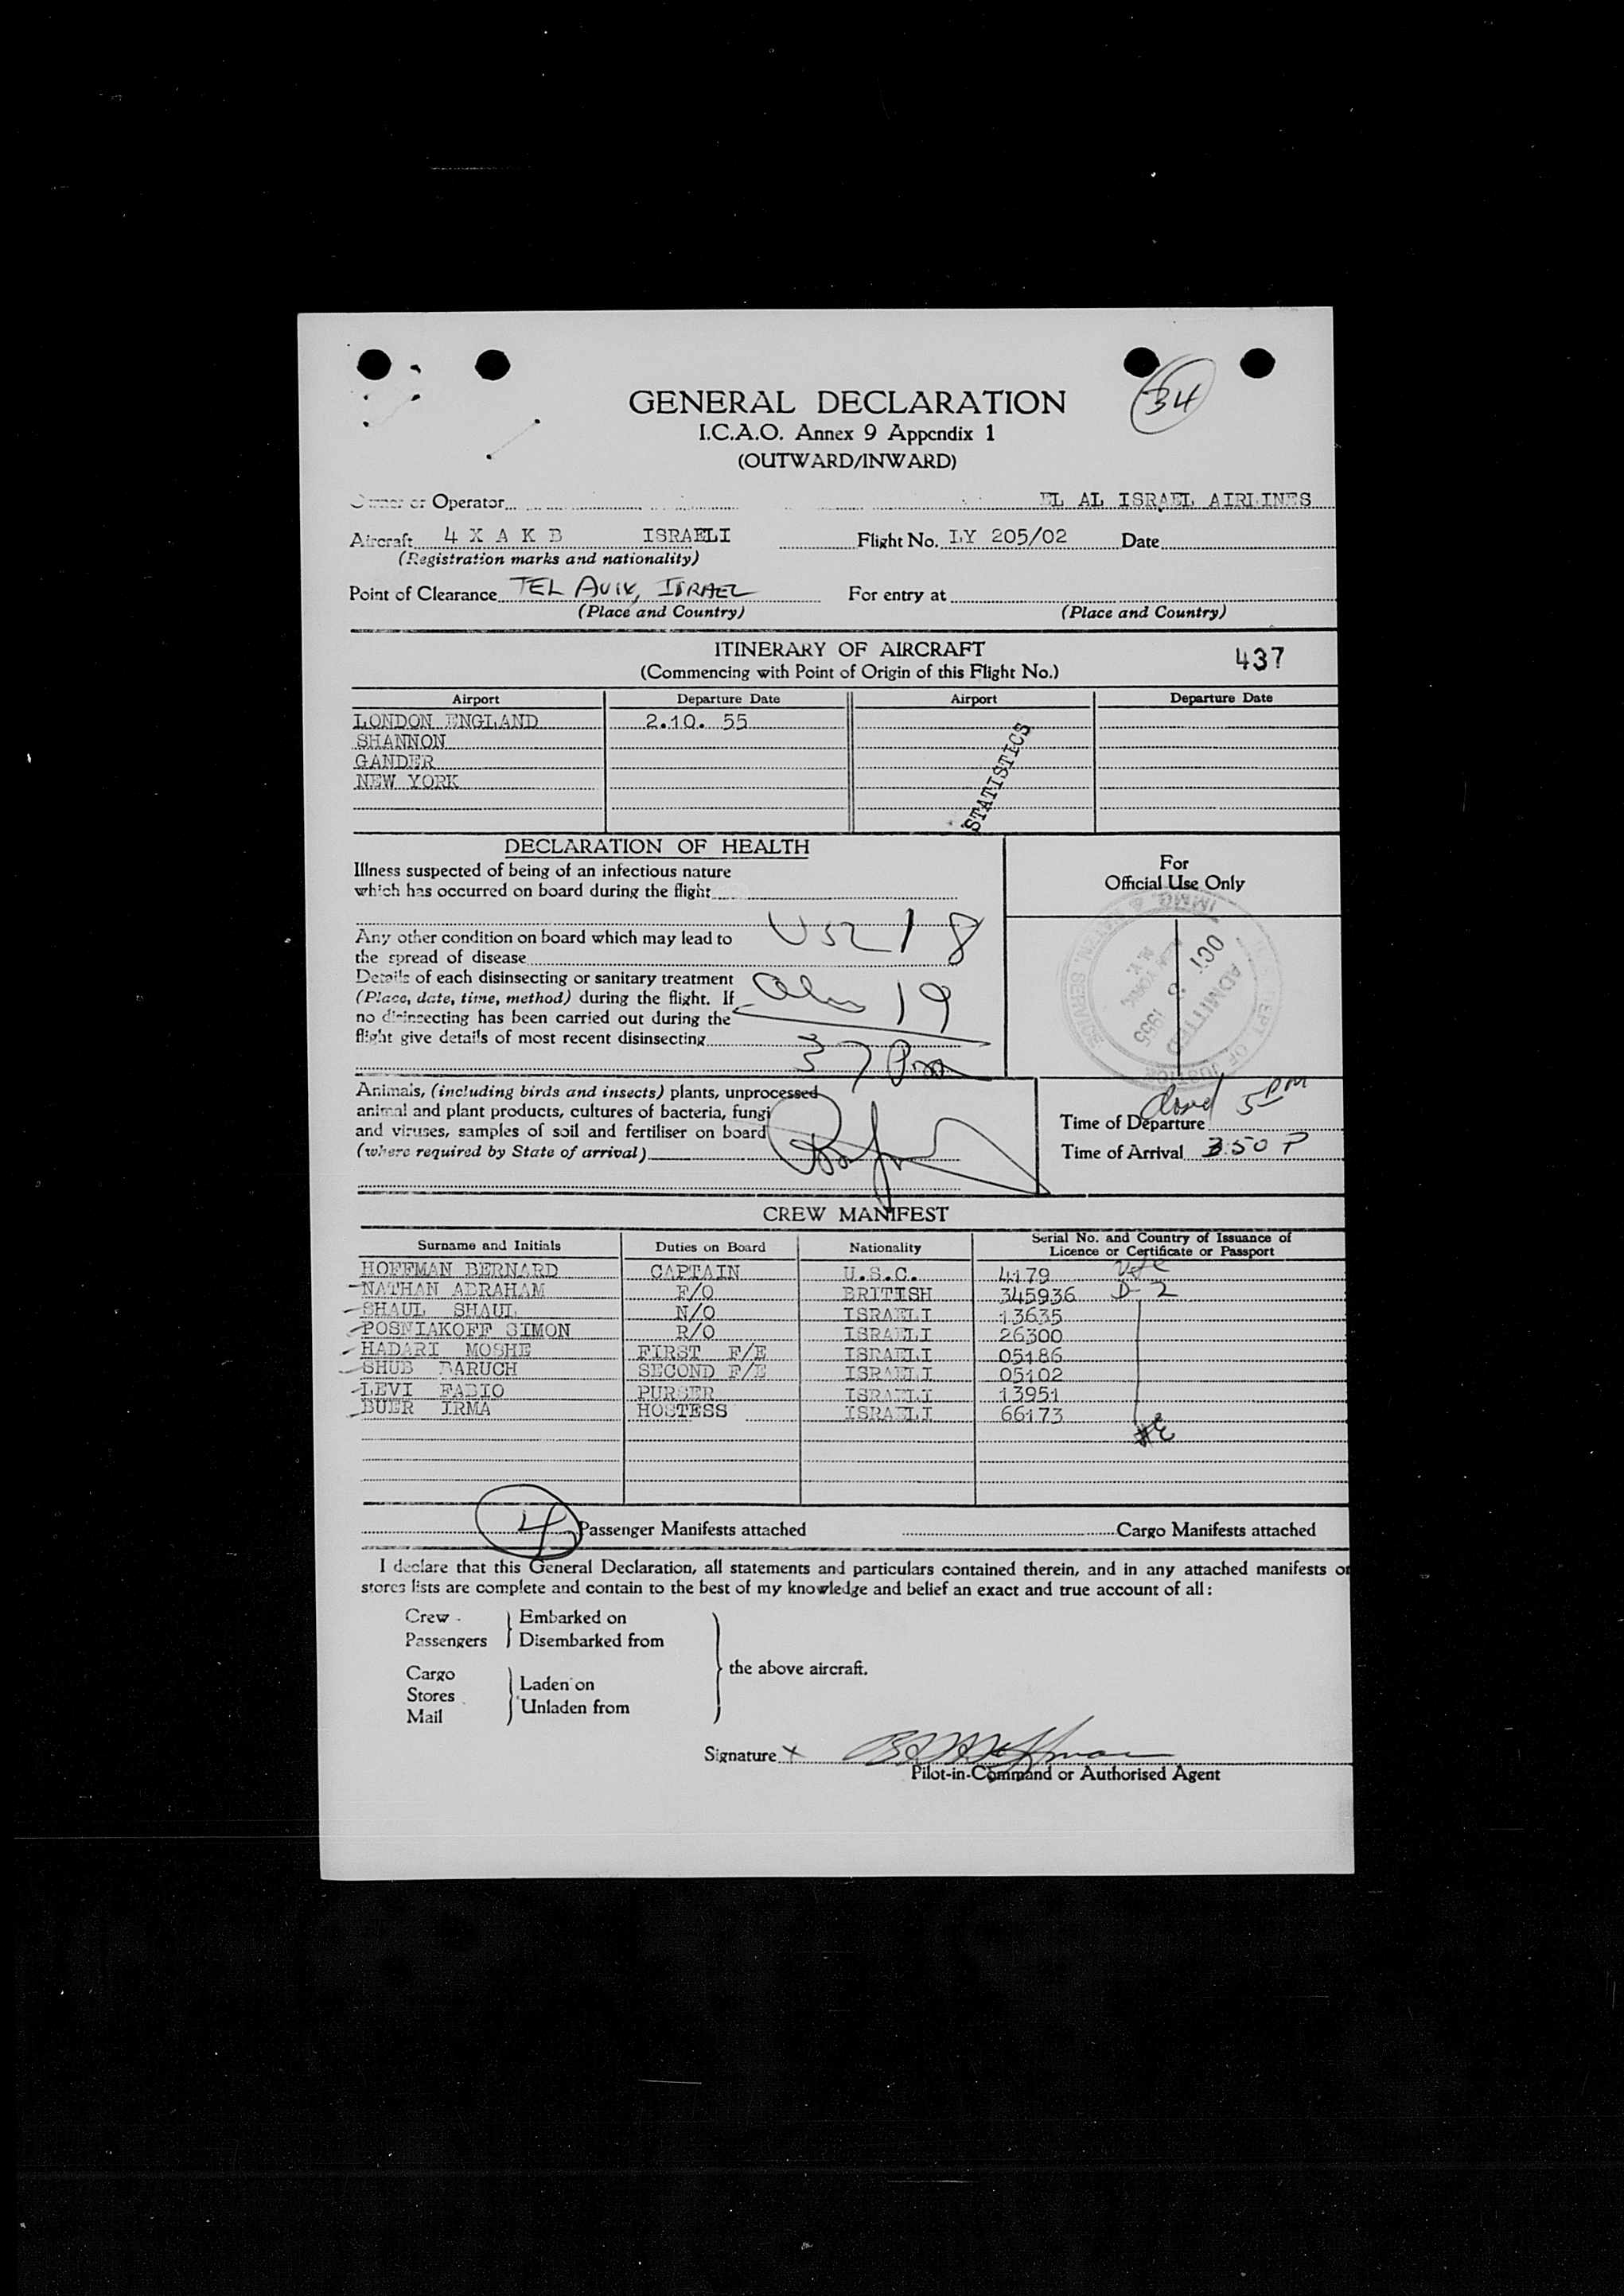 34
GENERAL DECLARATION
I.C.A.O. Annex 9 Appendix 1
(OUTWARD/INWARD)
Owner or Operator EL AL ISRAEL AIRLINES
Aircraft 4 X A K B ISRAELI Flight No. LY 205/02 Date
(Registration marks and nationality)
Point of Clearance TEL AVIV, ISRAEL For entry at
(Place and Country) (Place and Country)
ITINERARY OF AIRCRAFT
437
(Commencing with Point of Origin of this Flight No.)
Airport Departure Date Airport Departure Date
LONDON ENGLAND 2.10. 55
SHANNON
GANDER
NEW YORK
STATISTICS
DECLARATION OF HEALTH
Illness suspected of being of an infectious nature
which has occurred on board during the flight
Any other condition on board which may lead to
the spread of disease
18
Details of each disinsecting or sanitary treatment
(Place, date, time, method) during the flight. If
19
no disinsecting has been carried out during the
flight give details of most recent disinsecting
37
For
Official Use Only
IMMG. & NATZN. SERVICE
NEW YORK, N.Y.
ADMITTED
OCT 1955
DEPT OF JUSTICE
Animals, (including birds and insects) plants, unprocessed
animal and plant products, cultures of bacteria, fungi
and viruses, samples of soil and fertiliser on board
(where required by State of arrival)
closed 5 PM
Time of Departure
Time of Arrival 3.50 P
CREW MANIFEST
Surname and Initials Duties on Board Nationality Serial No. and Country of Issuance of Licence or Certificate or Passport
HOFFMAN BERNARD CAPTAIN U.S.C. 4179
NATHAN ABRAHAM F/O BRITISH 345936 D-2
SHAUL SHAUL N/O ISRAELI 13635
POSNIAKOFF SIMON R/O ISRAELI 26300
HADARI MOSHE FIRST F/E ISRAELI 05186
SHUB BARUCH SECOND F/E ISRAELI 05102
LEVI FABIO PURSER ISRAELI 13951
BUER IRMA HOSTESS ISRAELI 66173
4 Passenger Manifests attached Cargo Manifests attached
I declare that this General Declaration, all statements and particulars contained therein, and in any attached manifests or
stores lists are complete and contain to the best of my knowledge and belief an exact and true account of all:
Crew Embarked on
Passengers Disembarked from
the above aircraft.
Cargo
Stores Laden on
Mail Unladen from
Signature X B Hoffman
Pilot-in-Command or Authorised Agent